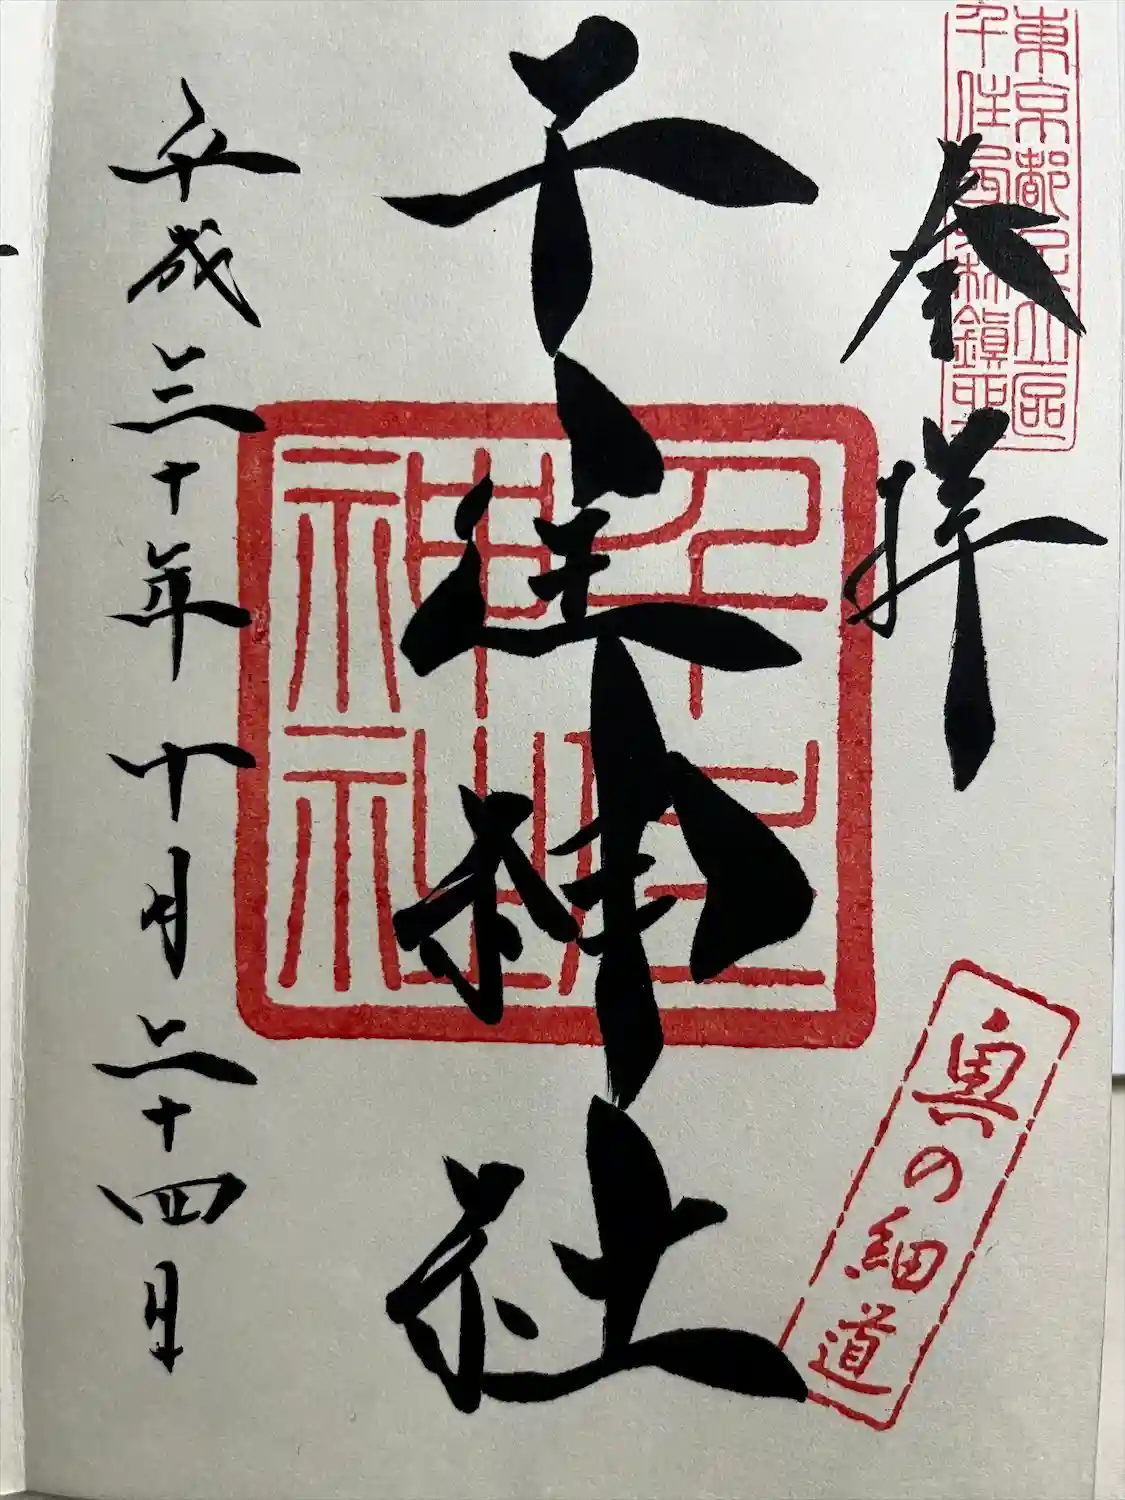 東京都足立区
奉拝
奥の細道
千住神社
千住神社
平成三十年十月二十四日